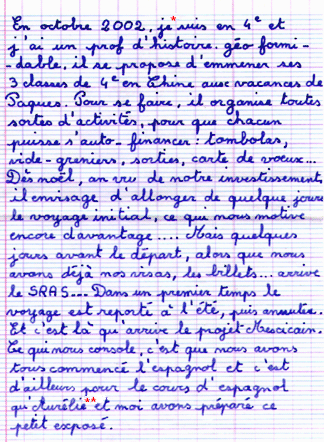 En octobre 2002, je* suis en 4e et
j'ai un prof d'histoire-géo formi-
-dable, il se propose d'emmener ses
3 classes de 4e en Chine aux vacances de
Paques. Pour se faire, il organise toutes
sortes d'activités, pour que chacun
puisse s'auto-financer: tombolas,
vide-greniers, sorties, carte de voeux...
Dès noël, au vu de notre investissement,
il envisage d'allonger de quelque jours
le voyage initial, ce que nous motive
encore d'avantage.... Mais quelques
jours avant le départ, alors que nous
avons déjà nos visas, les billets... arrive
le SRAS... Dans un premier temps le
voyage est reporté à l'été, puis annulé.
Et c'est là qu'arrive le projet Mexicain.
Ce qui nous console, c'est que nous avons
tous commencé l'espagnol et c'est
d'ailleurs pour le cours d'espagnol
qu'Aurélie** et moi avons préparé ce
petit exposé.